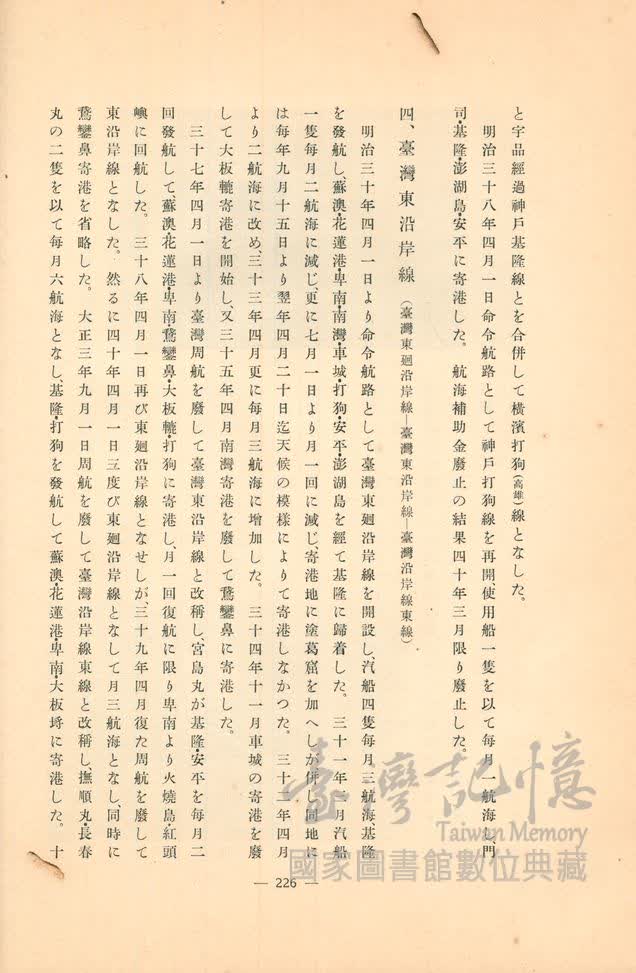 と宇品經過神戸基隆線とを合併して橫濱打狗(高雄)線となした。
明治三十八年四月一日命令航路として神戸打狗線を再開、使用船一隻を以て每月一航海し、門
司・基隆・澎湖島・安平に寄港した。航海補助金廢止の結果四十年三月限り廢止した。
四、臺灣東沿岸線(臺灣東廻沿岸線―臺灣東沿岸線―臺灣沿岸線東線)
明治三十年四月一日より命令航路として臺灣東廻沿岸線を開設し、汽船四隻每月三航海、基隆
を發航し、蘇澳・花蓮港・卑南・南灣・車城・打狗・安平・澎湖島を經て基隆に歸着した。三十一年二月汽船
一隻每月二航海に減じ、更に七月一日より月一回に減じ、寄港地に塗葛窟を加へしが、併し同地に
は每年九月十五日より翌年四月二十日迄天候の模樣によりて寄港しなかつた。三十二年四月
より二航海に改め、三十三年四月更に每月三航海に增加した。三十四年十一月車城の寄港を廢
して大板轆寄港を開始し、又三十五年四月南灣寄港を廢して鵞鑾鼻に寄港した。
三十七年四月一日より臺灣周航を廢して臺灣東沿岸線と改稱し、宮島丸が基隆・安平を每月二
回發航して、蘇澳・花蓮港・卑南・鵞鑾鼻・大板轆・打狗に寄港し、月一回復航に限り卑南より火燒島・紅頭
嶼に回航した。三十八年四月一日再び東廻沿岸線となせしが、三十九年四月復た周航を廢して
東沿岸線となした。然るに四十年四月一日三度び東廻沿岸線となして月三航海となし、同時に
鵞鑾鼻寄港を省略した。大正三年九月一日周航を廢して臺灣沿岸線東線と改稱し、撫順丸・長春
丸の二隻を以て每月六航海となし、基隆・打狗を發航して蘇澳・花蓮港・卑南・大板埓に寄港した。十
— 226 —
臺灣記憶
Taiwan Memory
國家圖書館數位典藏